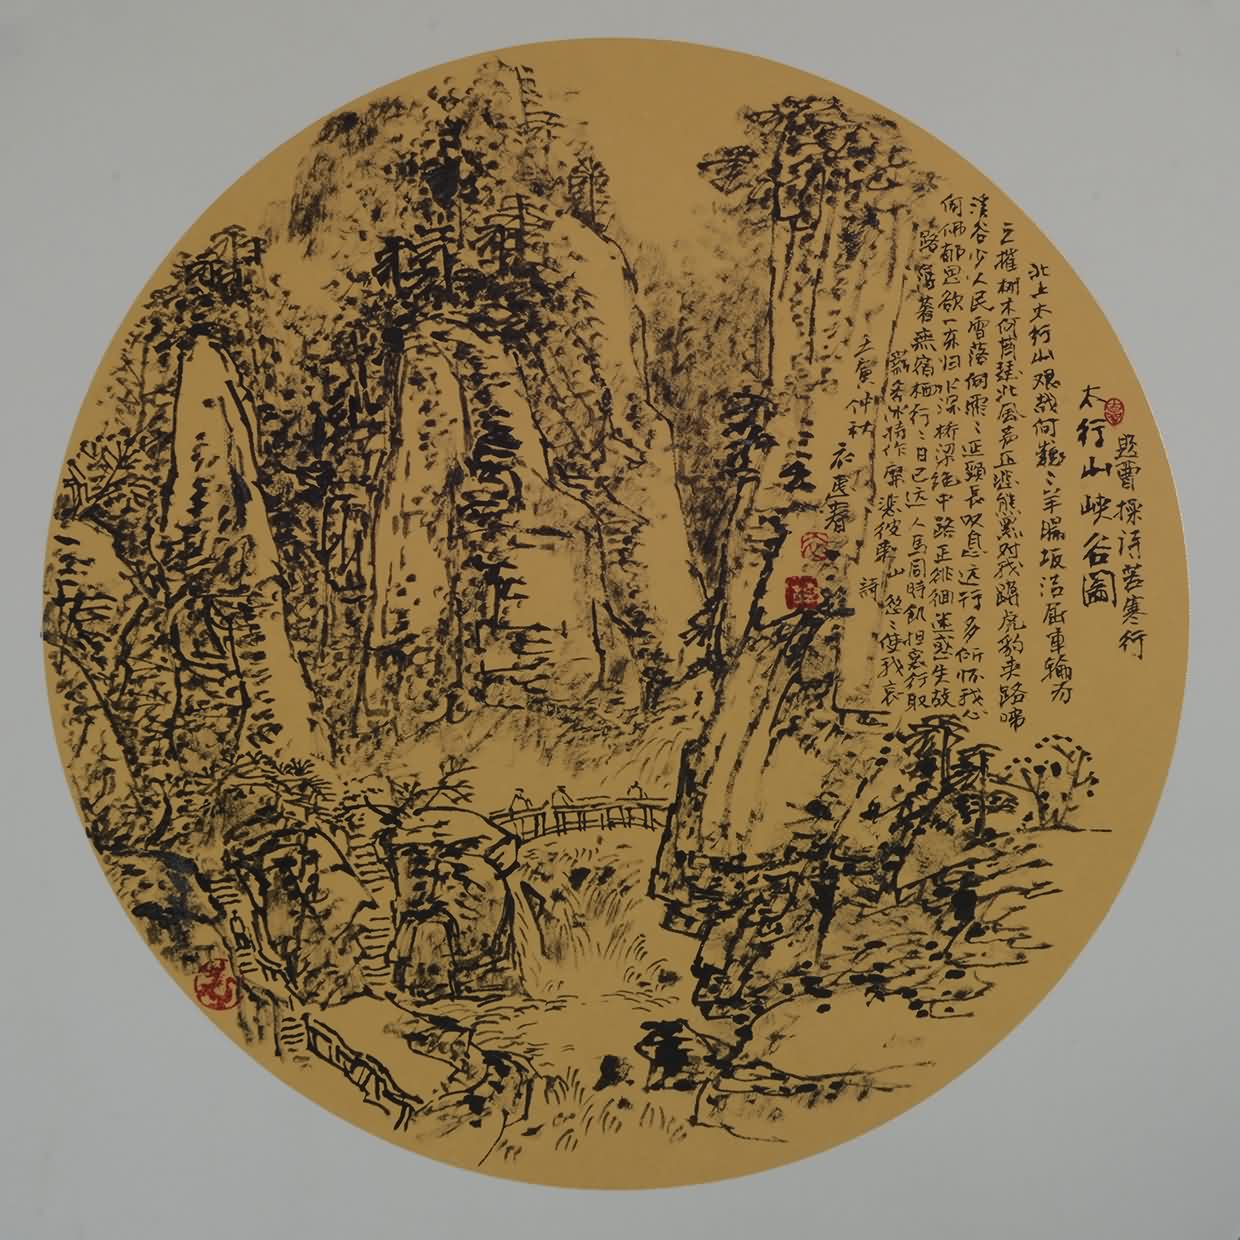 题曹操诗苦寒行
太行山峡谷図
北上太行山艰哉何巍々羊腸坂诘屈車輪为
之摧树木何萧瑟北风声正悲熊罴对我蹲虎豹夹路啼
溪谷少人民雪落何霏々延頸長叹息远行多所怀我心
何怫郁思欲一东归水深桥梁绝中路正徘徊迷惑失故
路薄暮無宿栖行々日已远人馬同時飢担囊行取
薪斧冰持作糜悲彼東山詩悠々使我哀
壬寅仲秋